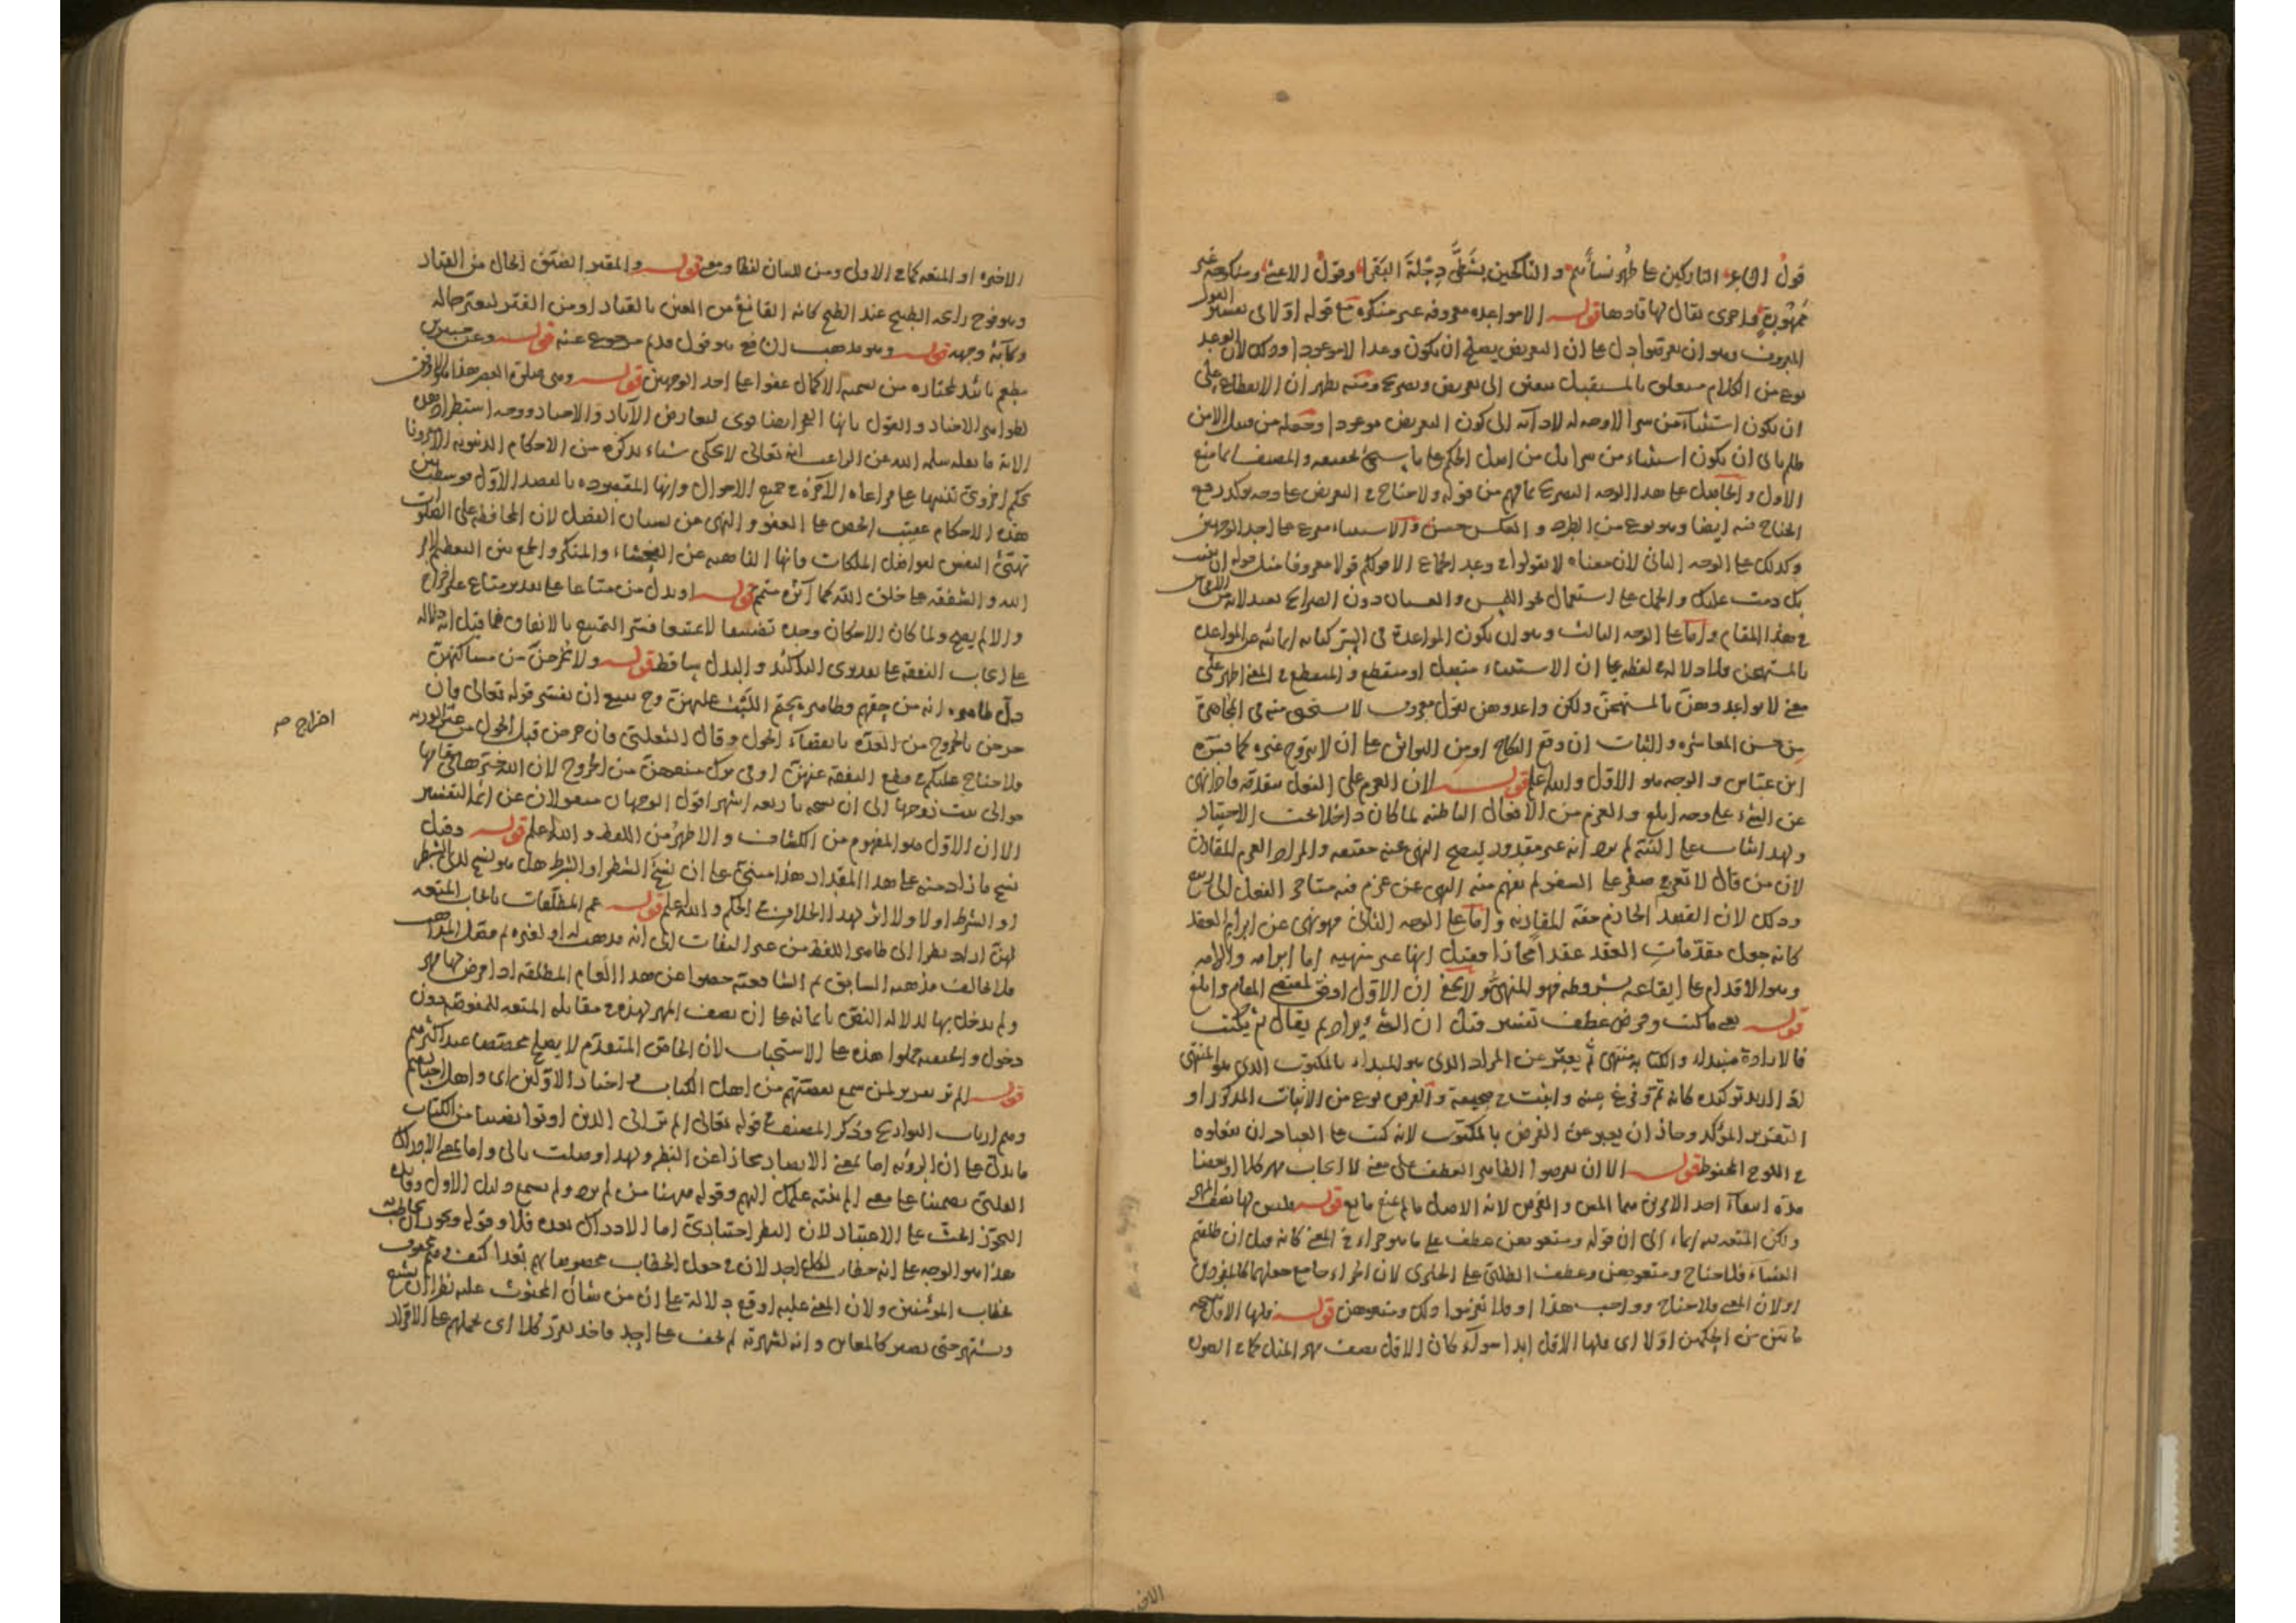 قول الشاعر التاركين على طهر نساءهم والناكحين بشطي دجلة البقرا وقول الاعشى ومنكوحة غير
ممهورة واخرى يقال لها فادها قوله الا مواعدة معروفة غير منكرة مع قوله اولا لى
المعروف وهو ان تعرضوا دل على ان التعريض يصلح ان يكون وعدا الا موعودا وذلك لان الوعد
نوع من الكلام متعلق بالمستقبل ينقسم الى تعريض وتصريح ومنه يظهر ان الانقطاع على
ان يكون استثناء من سرا لا وجه له لادائه الى كون التعريض موعودا وجعله من قبيل الا من
ظلم بابى ان يكون استثناء من سرا بل من اصل الحكم على ما والمصنف انما منع
الاول والحاصل على هذا الوجه التصريح بما فهم من قوله ولا جناح فى التعريض على وجه يؤكد رفع
الجناح فيه ايضا وهو نوع من الطرد والعكس حسن والاستثناء مفرع على احد الوجهين
وكذلك على الوجه الثانى لان معناه لا تقولوا فى وعد الجماع الا قولكم قولا معروفا مثل قوله ان
دون الصرائح بعيد لانه
فى هذا المقام واما على الوجه الثالث وهو ان يكون المواعدة فى السر كناية
بالمستهجن فلا دلالة لفظية على ان الاستثناء متصل او منقطع والمنقطع فى المعنى اظهر على
معنى لا تواعدوهن بالمستهجن ولكن واعدوهن بقول معروف لا يستحى منه فى المجاهرة
من حسن المعاشرة والثبات ان وقع النكاح او من التواثق على ان لا تتزوج غيره كما فسره
ابن عباس والوجه هو الاول والله اعلم قوله لان العزم على الفعل يتقدمه فاذا نهى
عن الشىء على وجه ابلغ والعزم من الافعال الباطنة لما كان داخلا تحت الاختيار
ولهذا يثاب على النية لم يرد انه غير مقدور ليصح النهى عنه حقيقة والمراد العزم المقارن
لان من قال لا تعزم صفر على السفر لم يفهم منه النهى عن عزم فيه متأخر الفعل الى ربيع
وذلك لان القصد الجازم حقه المقارنة واما على الوجه الثانى فهو نهى عن ابرام العقد
كانه جعل مقدمات العقد عقدا مجازا فقيل انها غير منهية اما ابرامه والزامه
وهو الاقدام على ايقاعه بشروطه فهو المنهى ولا يخفى ان الاول اوفق لمقتضى المقام وابلغ
قوله يعنى ما كتب وفرض عطف تفسير قيل ان الشىء يراد ثم يقال ثم يكتب
فالارادة مبتداء والكتابة منتهى ثم يعبر عن المراد الذى هو المبداء بالمكتوب الذى هو المنتهى
اذا اريد توكيده كانه تم وفرغ عنه واثبت فى صحيفة والغرض نوع من الاثبات المذكور او
التقرير المؤكد وجاز ان يعبر عن الفرض بالمكتوب لانه كتب على العباد ان
فى اللوح المحفوظ قوله الا ان تفرضوا الظاهر العطف على معنى لا ايجاب مهر كلا او بعضا
مدة انتفاء احد الامرين هما المس والفرض لانه الاصل ما لم يمنع مانع قوله فليس لها نصف المهر
ولكن المتعة فيه ايماء الى ان قوله ومتعوهن عطف على ما هو جزاء فى المعنى كانه قيل ان طلقتم
النساء فلا جناح ومتعوهن وعطف الطلبى على الخبرى لان الجزاء جامع جعلهما كالمفردين
او لان المعنى فلا جناح وواجب هذا او فلا تعزموا ذلك ومتعوهن قوله فلها الاقل
ما بين من الحكمين اولا اى فلها الاقل ابدا سواء كان الاقل نصف مهر المثل كما فى الصورة
الاخيرة او المتعة كما فى الاولى ومن للبيان لفظا ومعنى قوله والمقتر الضيق الحال من القتار
وهو فوح رائحة الطبيخ عند الطبخ كانه القانع من العيش بالقتار او من القتر لتغير حاله
وكآبة وجهه قوله وهو مذهب الشافعى هو قول قديم مرجوع عنه قوله وعن جبير بن
مطعم تائيد لمختاره من تسمية الاكمال عفوا على احد الوجهين قوله وهى صلوة العصر هذا هو الاوفق
لظواهر الاخبار والقول بانها الفجر ايضا قوى لتعارض الآثار والاخبار ووجه استطراد هذه
الاية ما نقله سلمه الله عن الراغب انه تعالى لا يحكى شيئا يذكره من الاحكام الدنيوية الا قرنها
بحكم اخروى تنبيها على مراعاة الآخرة فى جميع الاحوال وانها المقصودة بالقصد الاول
هذه الاحكام عقيب الحض على العفو والنهى عن نسيان الفضل لان المحافظة على الصلوات
تهيئ النفس لفواضل الملكات فانها الناهية عن الفحشاء والمنكر والجمع بين التعظيم لامر
الله والشفقة على خلق الله كما آثره منهم قوله او بدل من متاعا على تقدير متاع غير اخراج
والا لم يصح ولما كان الاسكان وحده تضييقا لا تمتيعا فسر التمتيع بالانفاق فما قيل انه لا دلالة
على ايجاب النفقة على تقديرى التاكيد والبدل ساقط قوله ولا تخرجن من مساكنهن
قيل ظاهره انه من حقهم وظاهره يحتم اللبث عليهن وح ينبغى ان يفسر قوله تعالى فان
خرجن بالخروج من العدة بانقضاء الحول وقال الثعلبى فان خرجن قبل الحول من غير الورثة
فلا جناح عليكم فى قطع النفقة عنهن او فى ترك منعهن من الخروج لان الله خيرها
حوالى بيت زوجها الى ان نسخه باربعة اشهر اقول الوجهان منقولان عن ائمة التفسير
الا ان الاول هو المفهوم من الكشاف والاظهر من اللفظ والله اعلم قوله وقيل
نسخ ما زاد منه على هذا المقدار هذا مبنى على ان نسخ الشطر او الشرط هل هو نسخ لذى الشطر
او الشرط اولا ولا اثر لهذا الخلاف فى الحكم والله اعلم قوله عم المطلقات بايجاب المتعة
لهن اراد نظرا الى ظاهر اللفظ من غير التفات الى انه مذهب له او لغيره
فلا يخالف مذهبه السابق ثم الشافعية خصوا عن هذا العام المطلقة اذا فرض لها مهر
ولم يدخل بها لدلالة النص بايمائه على ان نصف المهر لهذه فى مقابلة المتعة للمفوضة دون
دخول والحنفية حملوا هذه على الاستحباب لان الخاص المتقدم لا يصلح مخصصا عند اكثرهم
قوله الم تر تقرير لمن سمع بقصتهم من اهل الكتاب واخبار الاولين اى واهل اخبارهم
وهم ارباب التواريخ وذكر المصنف فى قوله تعالى الم تر الى الذين اوتوا نصيبا من الكتاب
ما يدل على ان الرؤية اما بمعنى الابصار مجازا عن النظر ولهذا وصلت بالى واما بمعنى الادراك
القلبى تضمينا على معنى الم ينته علمك اليهم وقوله ههنا من لم ير ولم يسمع دليل الاول وفائدة
التجوز الحث على الاعتبار لان النظر اختيارى اما الادراك بعده فلا وقوله ويجوز ان يخاطب به
هذا هو الوجه على انه خطاب لكل احد لان فى جعل الخطاب مخصوصا بهم بعدا كيف
خطاب المؤمنين ولان المعنى عليه اوقع دلالة على ان من شأن المحثوث عليه نظرا ان يشيع
ويشتهر حتى يصير كالمعاين وانه لشهرته لم يخف على احد فاخذ يقرر كلا اى يحملهم على الاقرار
اخراج صح
الاخ